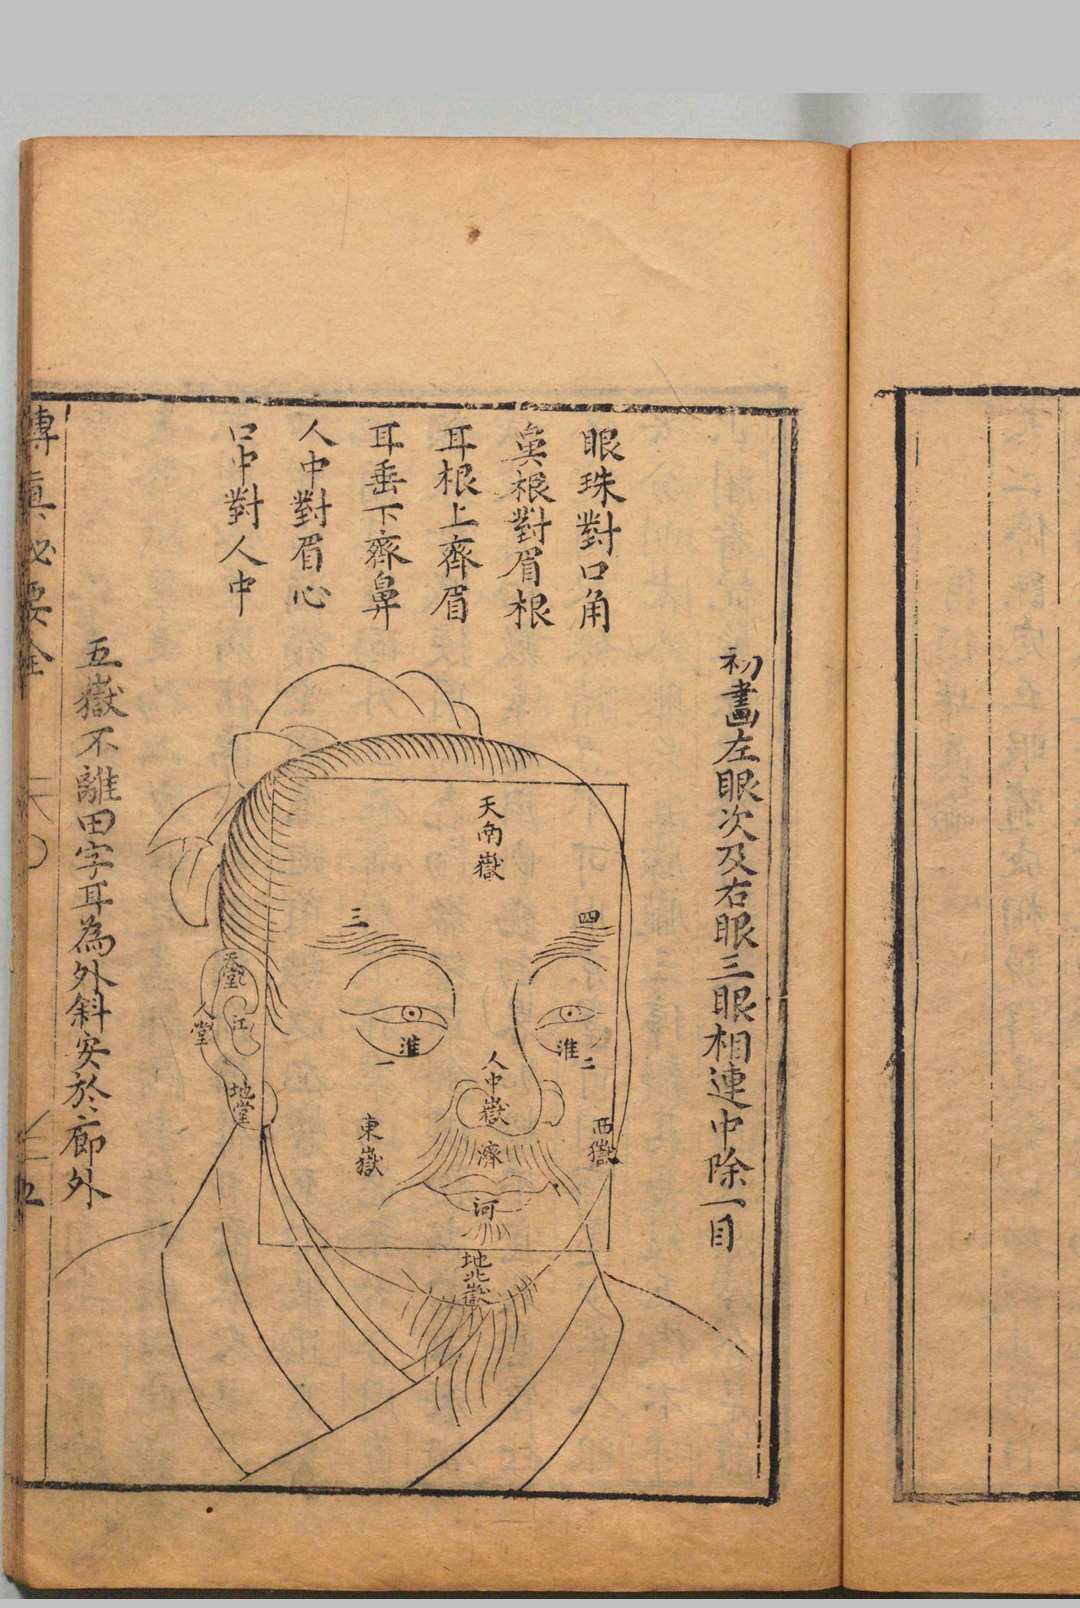 初畫左眼次及右眼三眼相連中除一目
眼珠對口角
鼻根對眉根
耳根上齊眉
耳垂下齊鼻
人中對眉心
口中對人中
天南嶽
四
三
淮二
淮一
人中嶽
西嶽
東嶽
濟
河
地北嶽
天堂
江
人堂
地堂
五嶽不離田字耳為外斜安於廊外
傳真秘要全